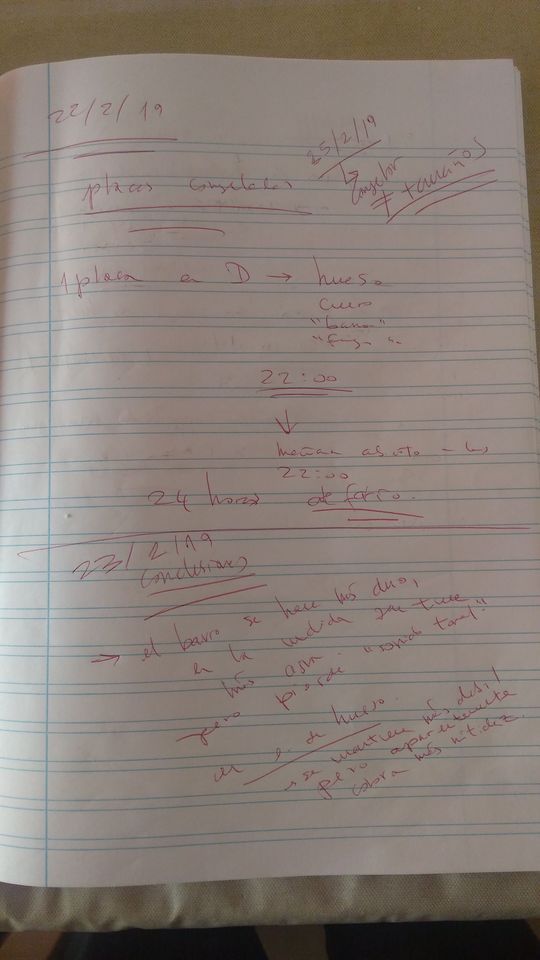 22/2/19
25/2/19
↳ congelar
≠ tamaños
placas congeladas
1 placa a D → hueso
cuero
"barro"
22:00
↓
22:00
24 horas de forro.
23/2/19
Conclusiones
→ el barro se hace más duro,
en la medida que tiene
más agua.
pero pierde "sonido tonal".
en e. de hueso.
→ se mantiene más débil
pero aparentemente
cobra más nitidez.